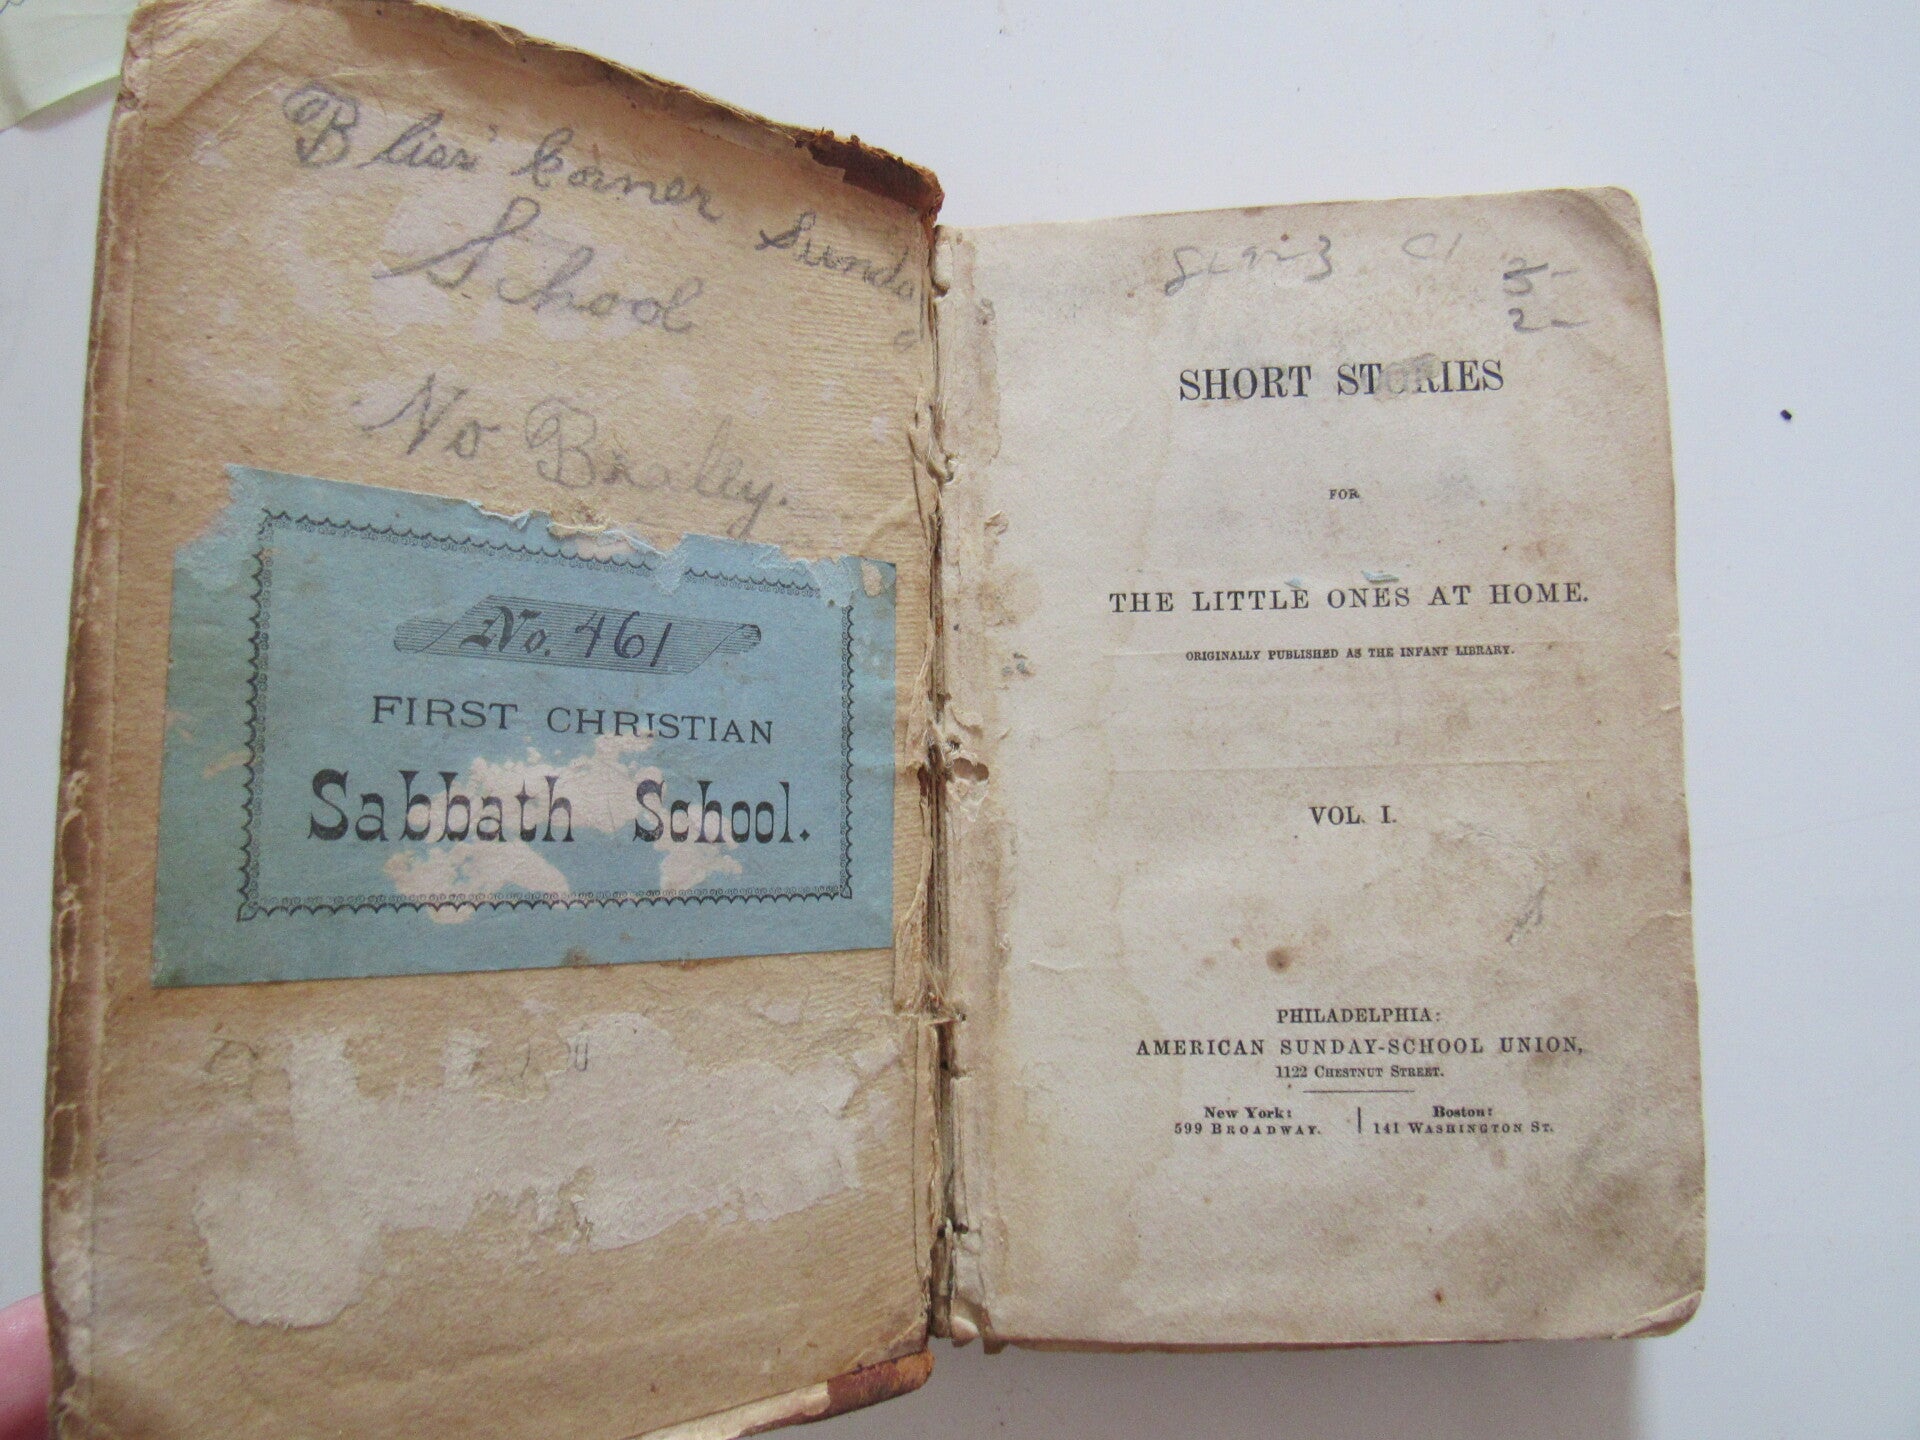 Bliss' Corner Sunday
School
No
No. 461
FIRST CHRISTIAN
Sabbath School.
3-
2-
SHORT STORIES
FOR
THE LITTLE ONES AT HOME.
ORIGINALLY PUBLISHED AS THE INFANT LIBRARY.
VOL. I.
PHILADELPHIA:
AMERICAN SUNDAY-SCHOOL UNION,
1122 CHESTNUT STREET.
New York:
599 BROADWAY.
Boston:
141 WASHINGTON ST.